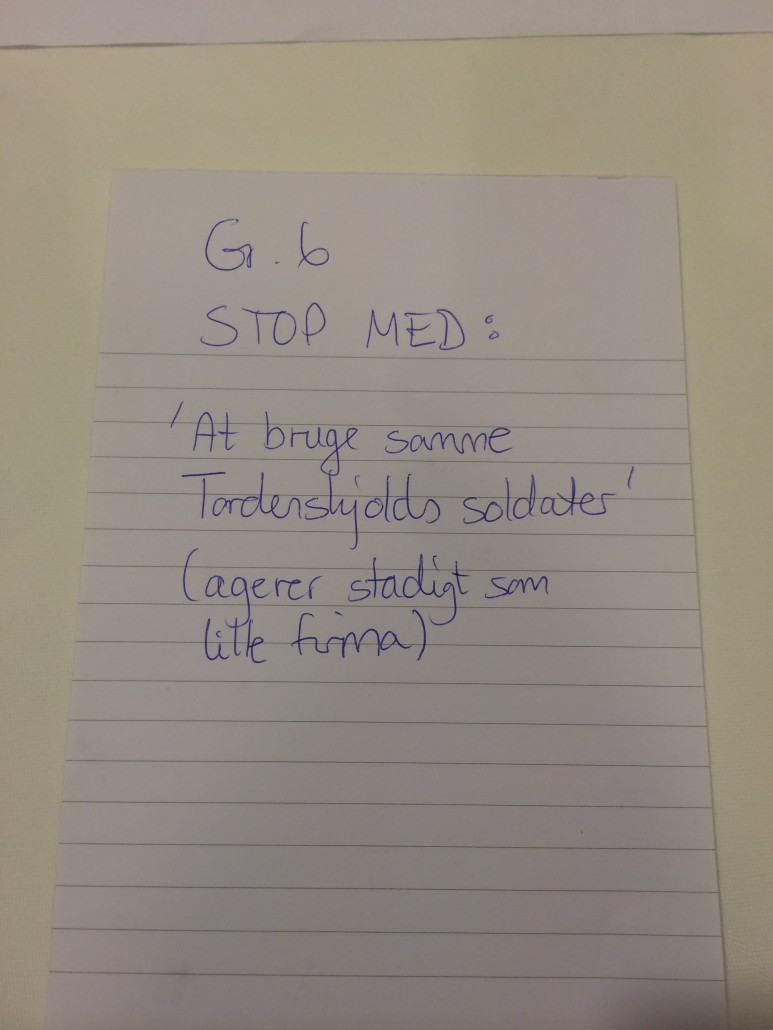 Gr. 6
STOP MED:
'At bruge samme
Tordenskjolds soldater'
(agerer stadigt som
lille firma)